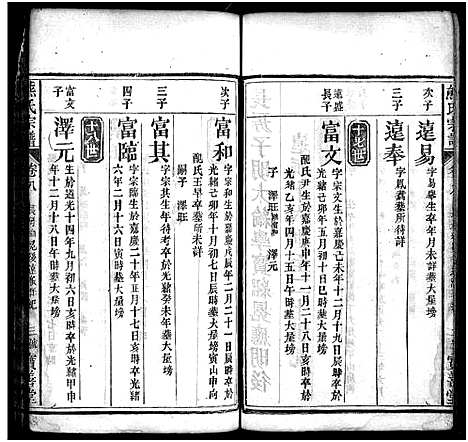 熊氏宗譜
次子
遠易
字易學生卒年月未詳墓
三子
遠奉
字鳳翥墓所待詳
十七世
遠盛長子
富文
字宗文生於嘉慶己未年十二月十九日寅時卒於
光緒己卯年十月初十日巳時墓大星塝
配氏尹生於嘉慶庚申年十一月二十日辰時卒於
光緒乙亥年四月十五日午時墓大星塝
子 澤旺
次子
富和
字宗和生於嘉慶庚辰年二月二十一日辰時卒於
光緒己卯年十月初七日辰時墓寶山申向
配氏王早卒墓所未詳
嗣子 澤旺
三子
富其
字宗其生年待考卒於光緒癸未年墓大星塝
四子
富臨
字 生於嘉慶二十二年正月十七日亥時卒光緒
六年二月十六日寅時墓大星塝
十八世
富文子
澤元
生於道光十四年九月初六日亥時卒於光緒甲申
年十二月十八日午時墓大星塝
熊氏宗譜
卷八
三
寶善堂